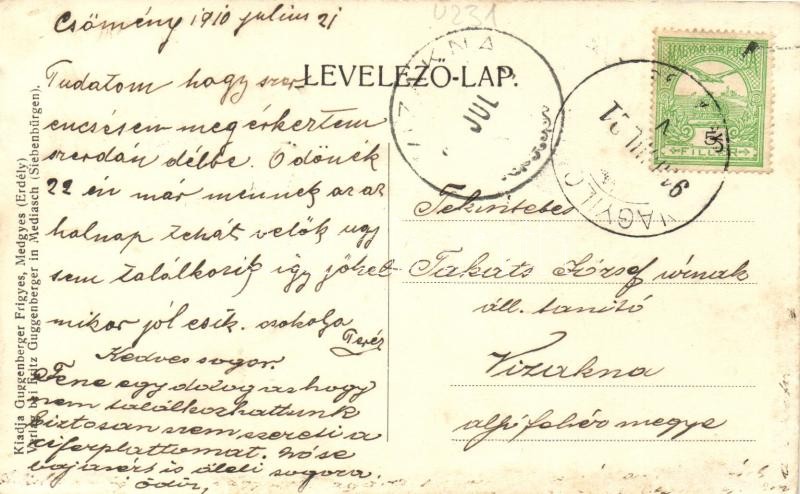 U231
Csömény 1910 julius 21
Tudatom hogy szer-
encsésen megérkeztem
szerdán délbe. Ödönék
22 én már mennek az az
holnap tehát velök ugy
sem találkozik így jöhet
mikor jól esik. csokolja
Teréz
Kedves sogor.
Fene egy dolog az hogy
nem találkozhattunk
biztosan szem szereti a
ciferplattomat.
is öleli sogora
Ödön,
LEVELEZŐ-LAP.
VIZAKNA
JUL
MAGYAR KIR. POSTA
5
FILLÉR
NAGYILO
910 JUL 21
Tekintetes
Takáts József úrnak
áll. tanító
Vizakna
alsófehér megye
Kiadja Guggenberger Frigyes, Medgyes (Erdély)
Verlag bei Fritz Guggenberger in Mediasch (Siebenbürgen).